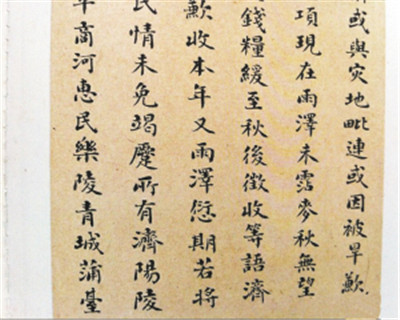 或與災地毗連或因被旱歉
項現在雨澤未霑麥秋無望
錢糧緩至秋後徵收等語濟
歉收本年又雨澤愆期若將
民情未免竭蹷所有濟陽陵
年商河惠民樂陵青城蒲臺